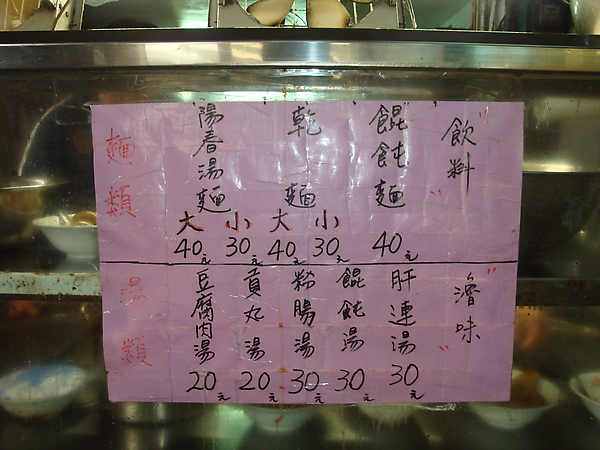 麵類
陽春湯麵
大 小
40元 30元
乾麵
大 小
40元 30元
餛飩麵
40元
"飲料"
湯類
豆腐肉湯
20元
貢丸湯
20元
粉腸湯
30元
餛飩湯
30元
肝連湯
30元
"滷味"